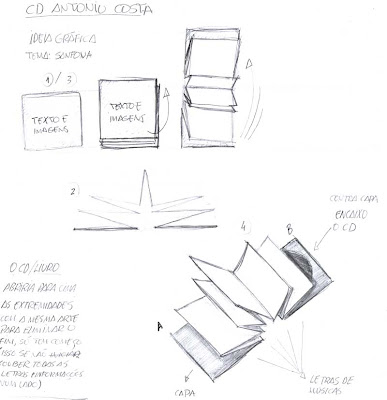 CD ANTONIO COSTA
IDEIA GRÁFICA
TEMA: SANFONA
1) / 3)
TEXTO E
IMAGENS
TEXTO E
IMAGENS
2)
4)
A
B
CONTRA CAPA
ENCAIXO
O CD
O CD/LIVRO
ABRIRIA PARA CIMA
AS EXTREMIDADES
COM A MESMA ARTE
PARA ELIMINAR O
FIM, SÓ TEM COMEÇO
SE NÃO
COUBER TODAS AS
LETRAS E INFORMAÇÕES
NUM LADO)
CAPA
LETRAS DE
MÚSICAS